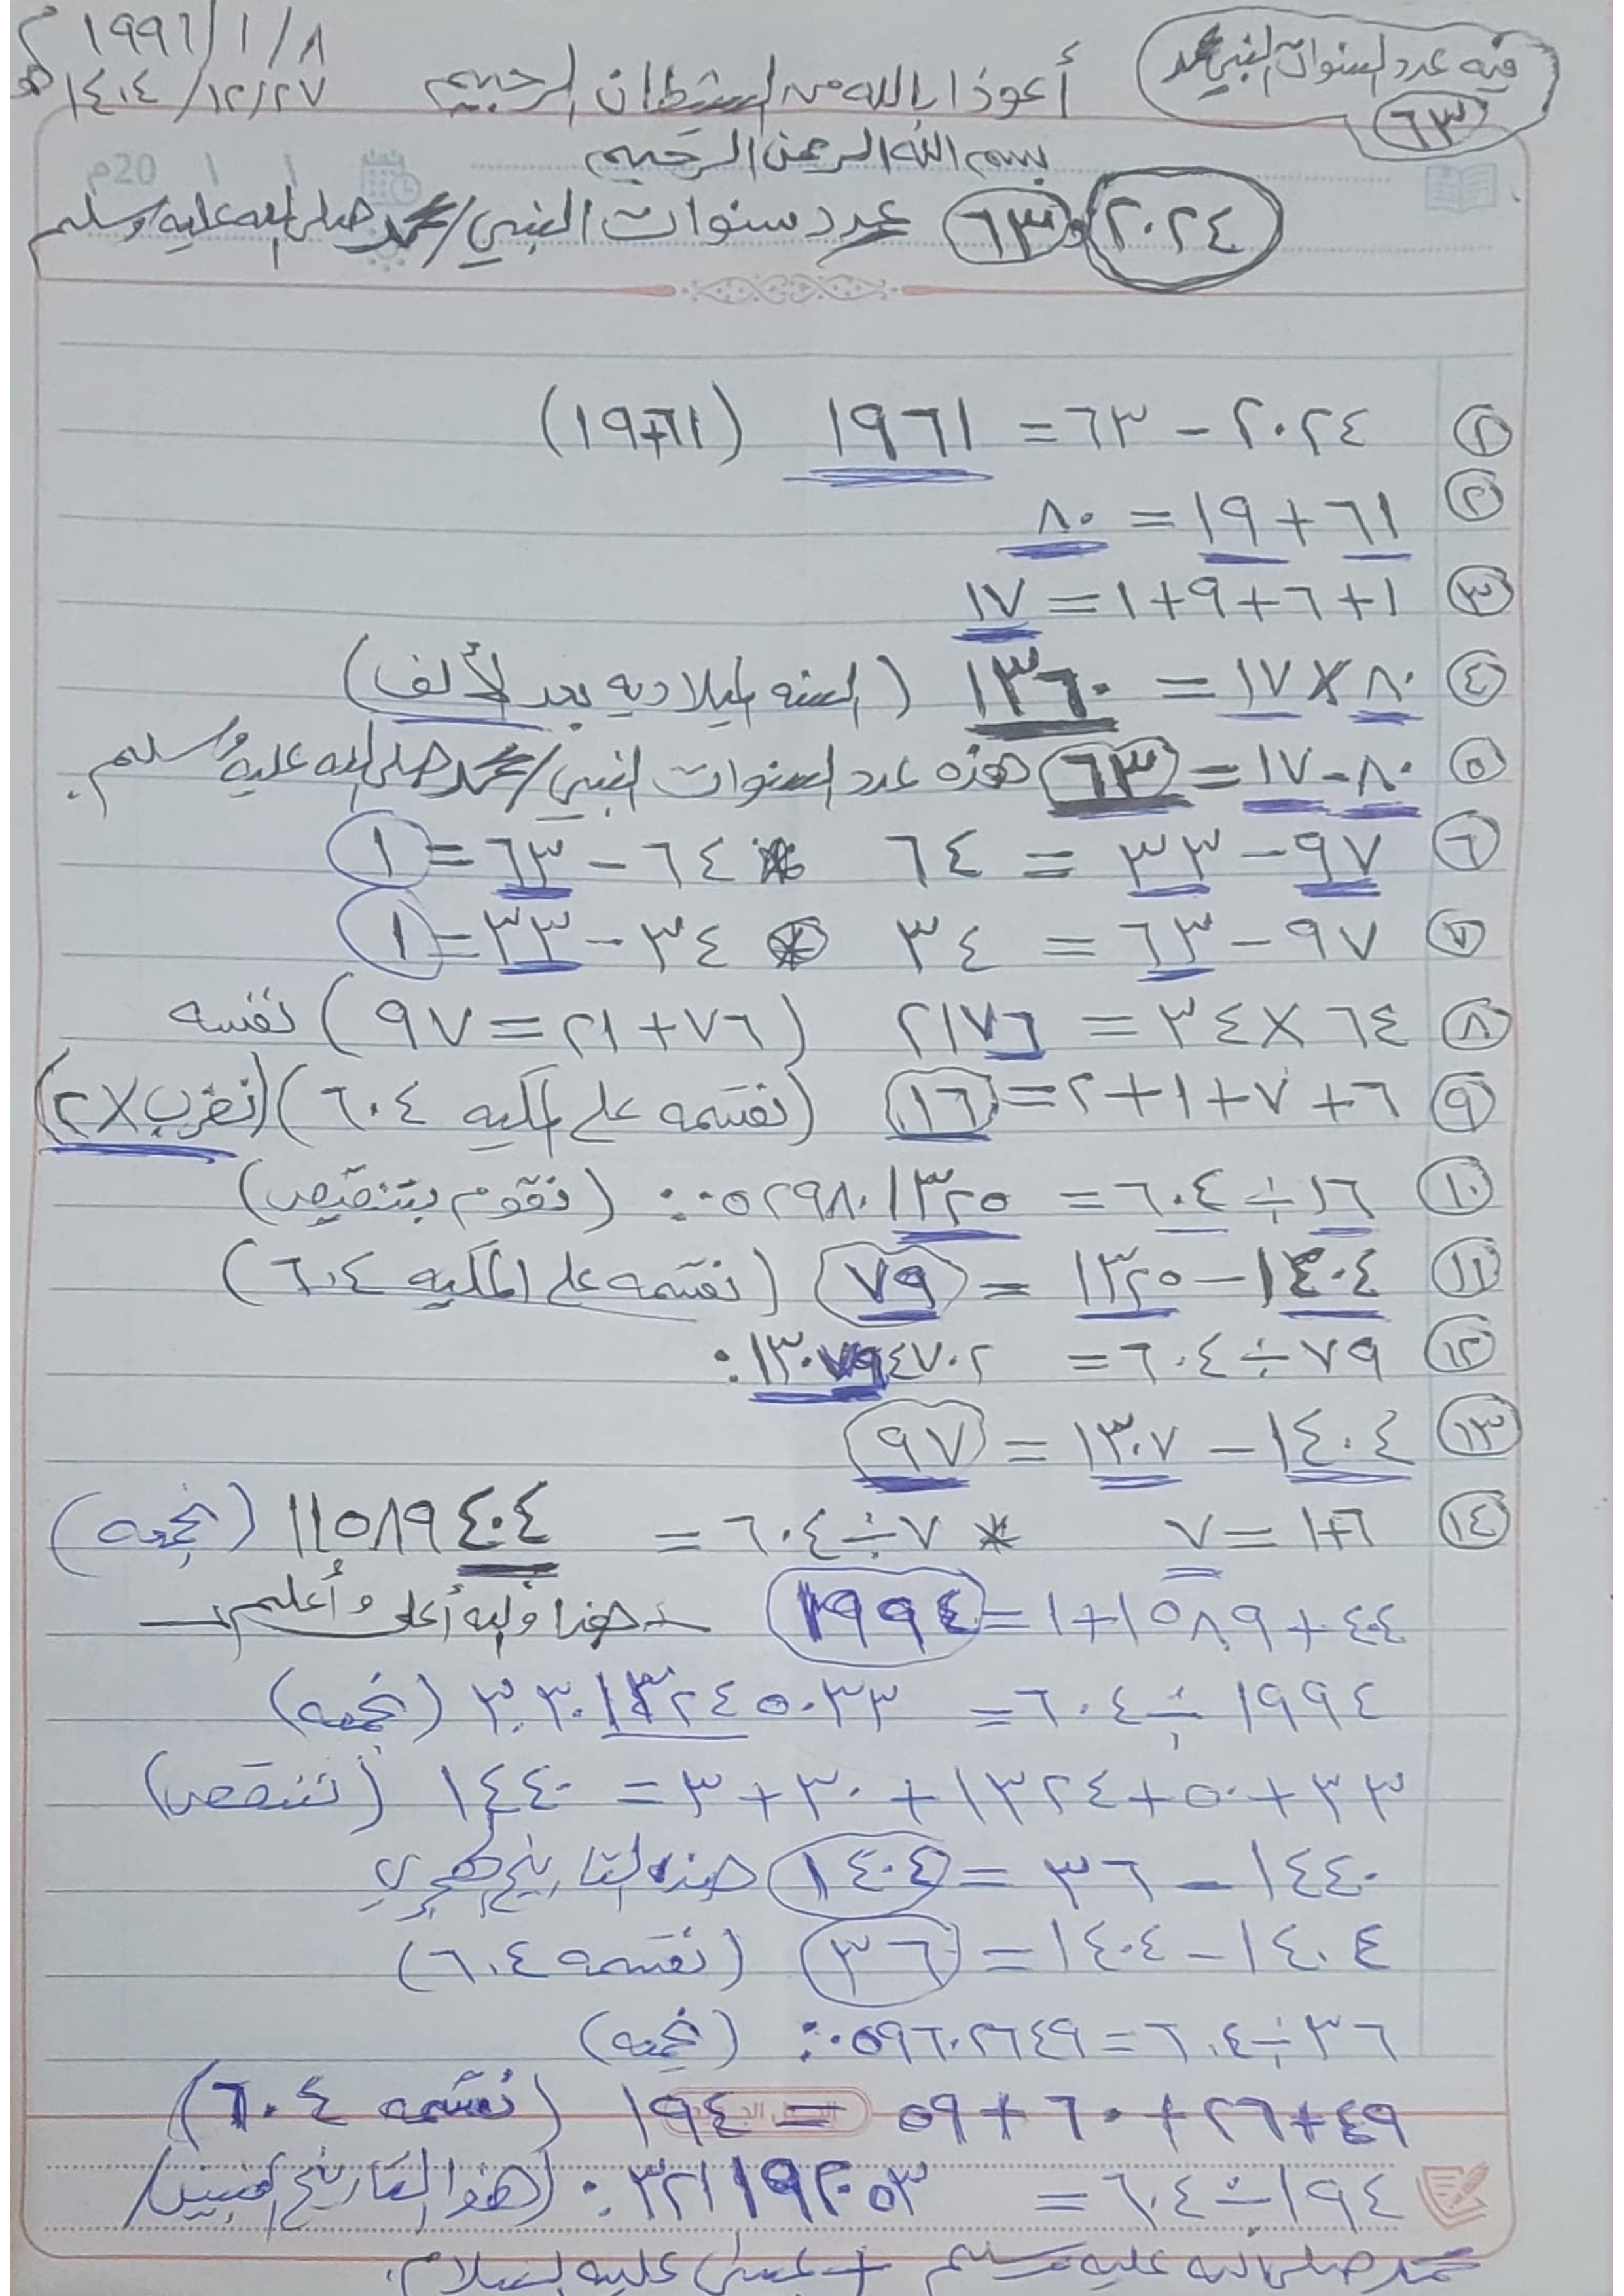 فيه عدد السنوات النبي محمد
٦٣
١٩٩٦/١/٨ م
١٤٠٤/١٢/٢٧ هـ
أعوذ بالله من الشيطان الرجيم
بسم الله الرحمن الرحيم
20م / /
٢٠٢٤ و ٦٣ عدد سنوات النبي/محمد صلى الله عليه وسلم
② ٢٠٢٤ - ٦٣ = ١٩٦١ (١٩+٦١)
② ٦١ + ١٩ = ٨٠
③ ١+٦+٩+١ = ١٧
④ ٨٠ × ١٧ = ١٣٦٠ (السنه الميلاديه بعد الألف)
⑤ ٨٠ - ١٧ = ٦٣ هذه عدد السنوات النبي/محمد صلى الله عليه وسلم.
⑥ ٩٧ - ٣٣ = ٦٤ * ٦٤ - ٦٣ = ١
⑦ ٩٧ - ٦٣ = ٣٤ * ٣٤ - ٣٣ = ١
⑧ ٦٤ × ٣٤ = ٢١٧٦ (٧٦+٢١=٩٧) نفسه
⑨ ٦+٧+١+٢ = ١٦ (نقسمه على المكيه ٦٠٤) (نضرب ×٢)
⑩ ١٦ ÷ ٦٠٤ = ٠٥٢٩٨٠١٣٢٥.٠ (نقوم بتنقيص)
⑪ ١٤٠٤ - ١٣٢٥ = ٧٩ (نقسمه على المكيه ٦٠٤)
⑫ ٧٩ ÷ ٦٠٤ = ١٣٠٧٩٤٧٠٢.
⑬ ١٤٠٤ - ١٣٠٧ = ٩٧
⑭ ٦+١ = ٧ * ٧ ÷ ٦٠٤ = ١١٥٨٩٤٠٤ (نجمعه)
٤٠٤ + ١٥٨٩ + ١ = ١٩٩٤ هذا والله أعلى وأعلم
١٩٩٤ ÷ ٦٠٤ = ٣.٣٠١٣٢٤٥٠٣٣ (نجمعه)
٣٣ + ٥٠ + ١٣٢٤ + ٣٠ + ٣ = ١٤٤٠ (تنقص)
١٤٤٠ - ٣٦ = ١٤٠٤ هذه التاريخ الهجري
١٤٠٤ - ١٤٠٤ = ٣٦ (نقسمه ٦٠٤)
٣٦ ÷ ٦٠٤ = ٠٥٩٦٠٢٦٤٩.٠ (نجمعه)
٤٩ + ٢٦ + ٦٠ + ٥٩ = ١٩٤ (نقسمه ٦٠٤)
١٩٤ ÷ ٦٠٤ = ٣٢١١٩٢٠٥٣. (هذا التاريخ النبيين/
محمد صلى الله عليه وسلم + عيسى عليه السلام.